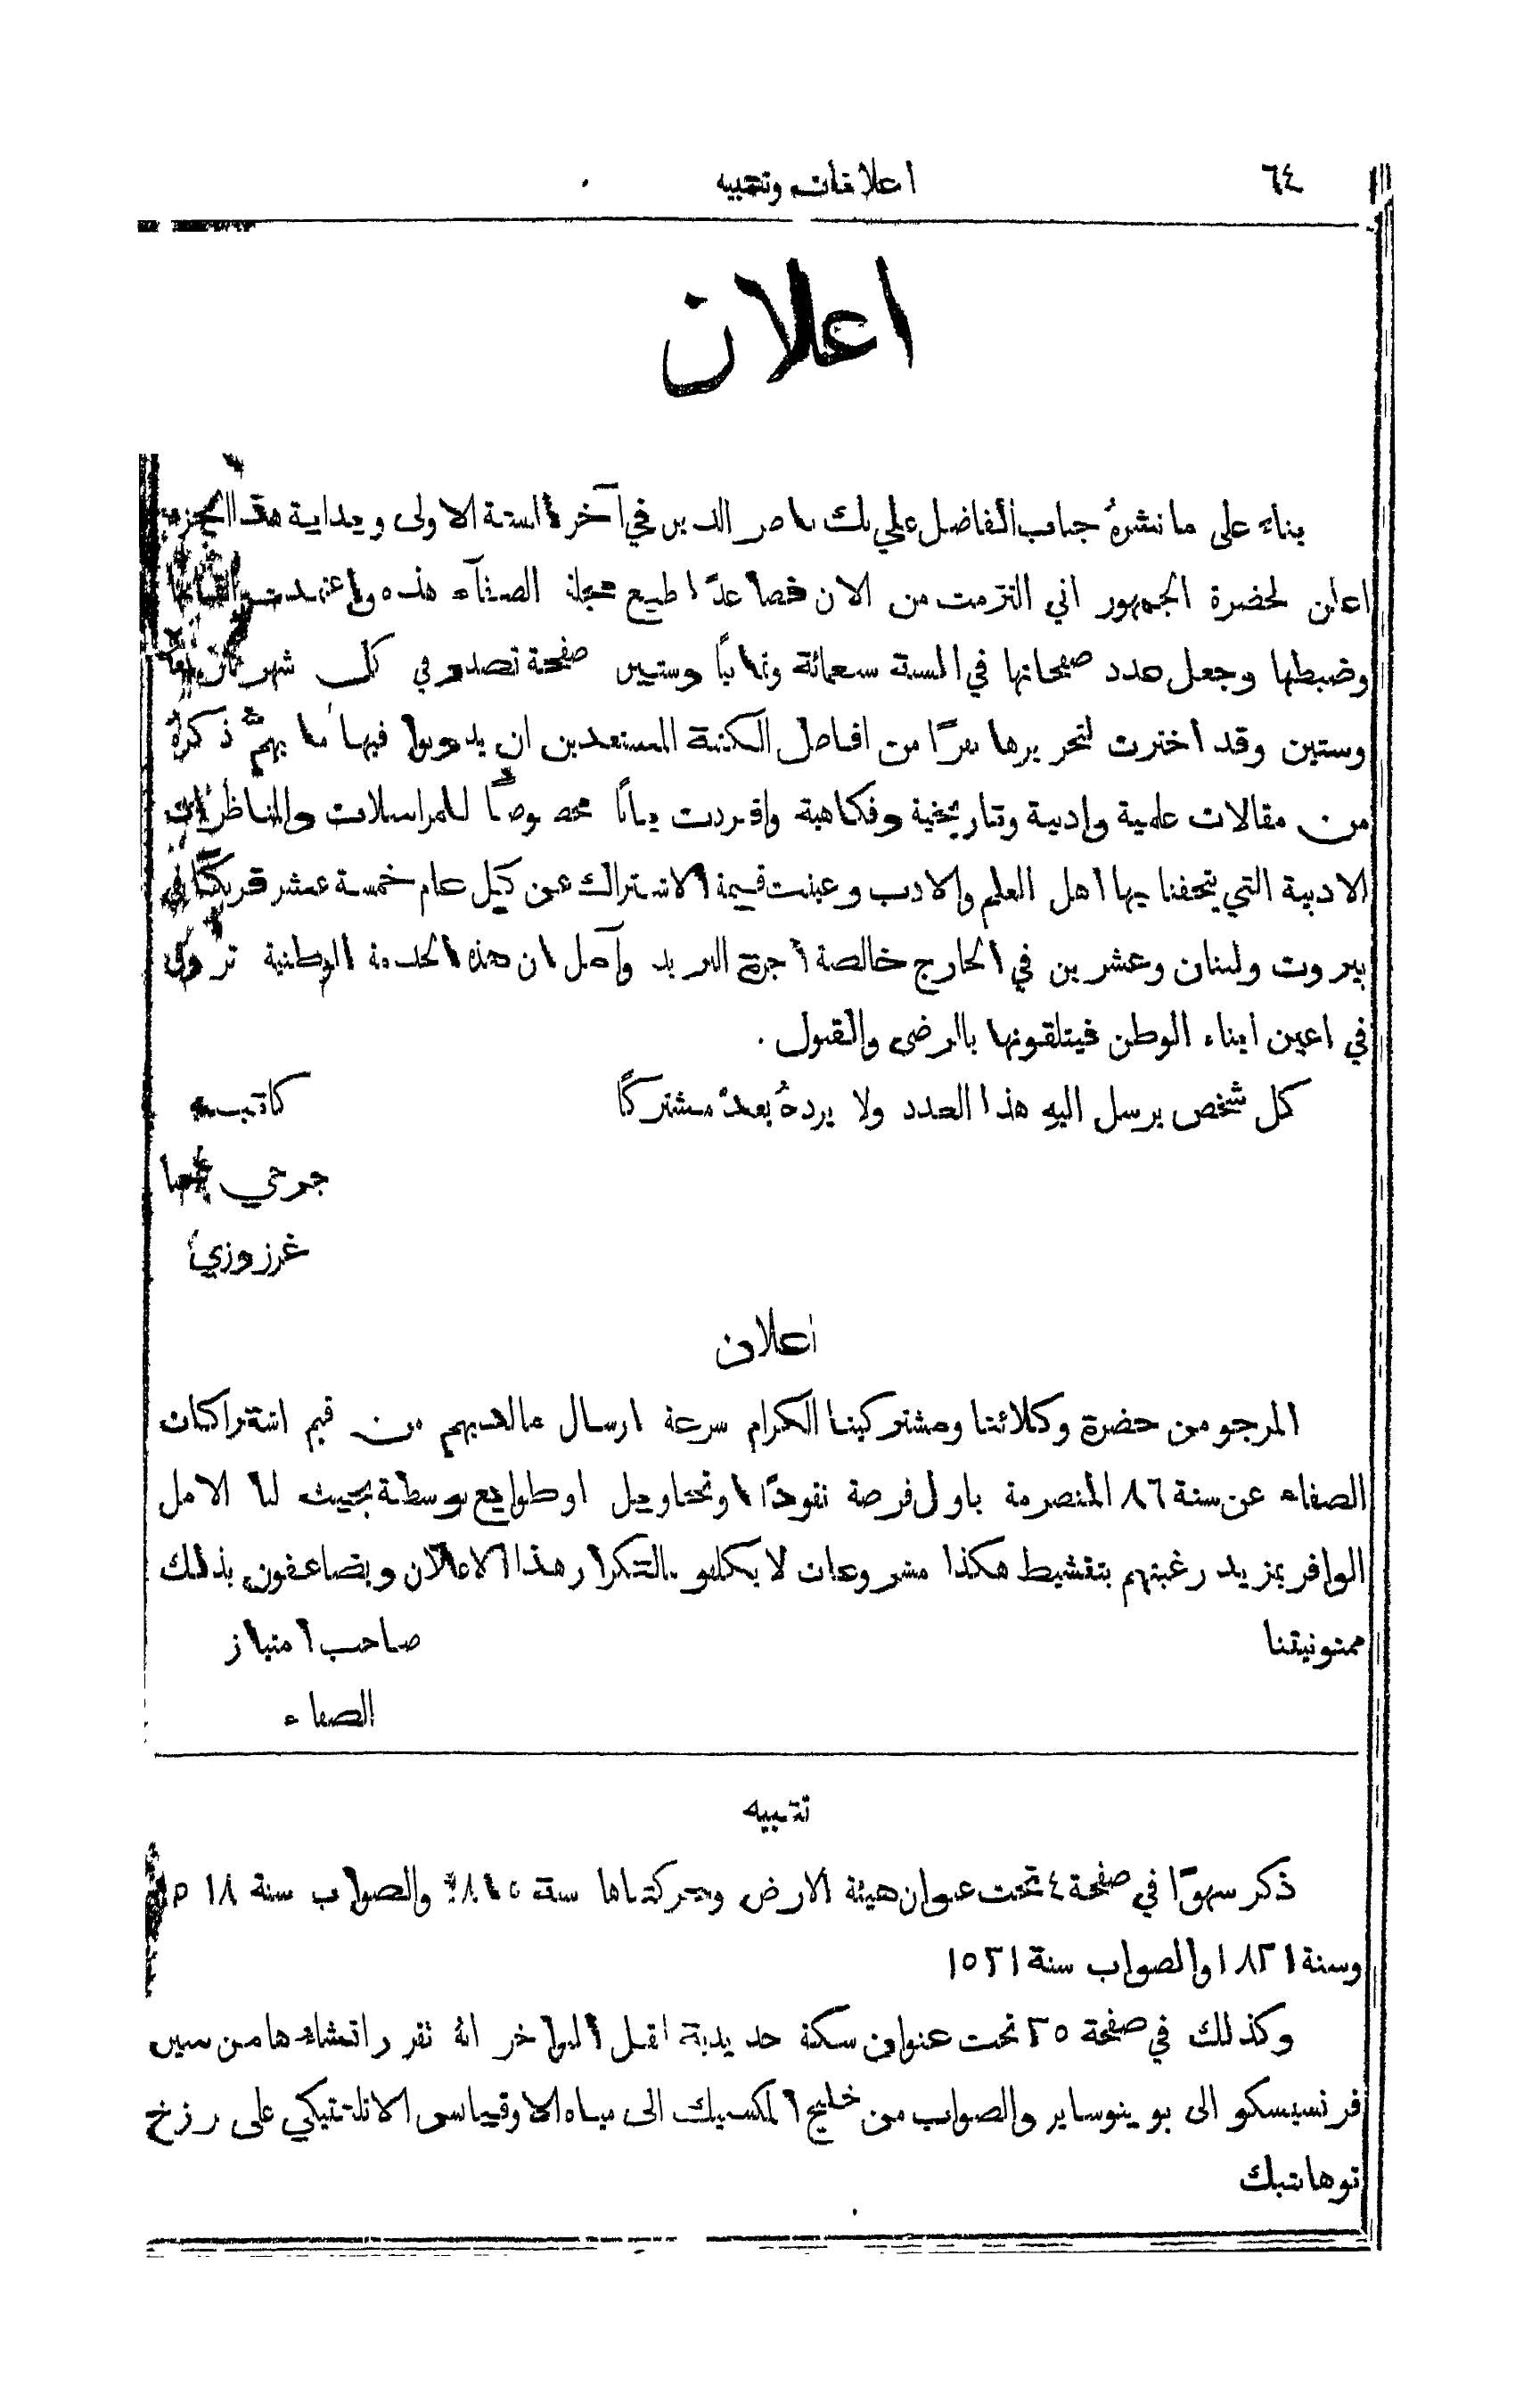 ٦٤
اعلانات وتنبيه
اعلان
بناءً على ما نشرهُ جناب الفاضل علي بك ناصر الدين في آخر السنة الاولى وبداية هذا الجزء
اعلن لحضرة الجمهور اني التزمت من الان فصاعدًا طبع مجلة الصفآء هذه واعتمدت
وضبطها وجعل عدد صفحاتها في السنة سبعمائة وثمانيًا وستين صفحة تصدر في كل شهر
وستين وقد اخترت لتحريرها نفرًا من افاضل الكتبة المستعدين ان يدونوا فيها ما يهمّ ذكرهُ
من مقالات علمية وادبية وتاريخية وفكاهية وافردت بابًا مخصوصًا للمراسلات والمناظرات
الادبية التي يتحفنا بها اهل العلم والادب وعينت قيمة الاشتراك عن كل عام خمسة عشر فرنكًا في
بيروت ولبنان وعشرين في الخارج خالصة اجرة البريد وآمل ان هذه الخدمة الوطنية تروق
في اعين ابناء الوطن فيتلقونها بالرضى والقبول .
كل شخص يرسل اليه هذا العدد ولا يردهُ بعدّ مشتركًا
كاتبه
جرجي
غرزوزي
اعلان
المرجو من حضرة وكلائنا ومشتركينا الكرام سرعة ارسال ما لديهم من قيم اشتراكات
الصفاء عن سنة ٨٦ المنصرمة باول فرصة نقودًا او تحاويل او طوابع بوسطة بحيث لنا الامل
الوافر بمزيد رغبتهم بتنشيط هكذا مشروعات لا يكلفونا لتكرار هذا الاعلان ويضاعفون بذلك
ممنونيتنا
صاحب امتياز
الصفاء
تنبيه
ذكر سهوًا في صفحة ٤ تحت عنوان هيئة الارض وحركتاها سنة ١٨١٥ والصواب سنة ١٥١٨
وسنة ١٨٢١ والصواب سنة ١٥٢١
وكذلك في صفحة ٢٥ تحت عنوان سكة حديدية لنقل البواخر انهُ تقرر انشاءها من سين
فرنسيسكو الى بوينوساير والصواب من خليج المكسيك الى مياه الاوقيانس الاتلنتيكي على رزخ
توهانتبك